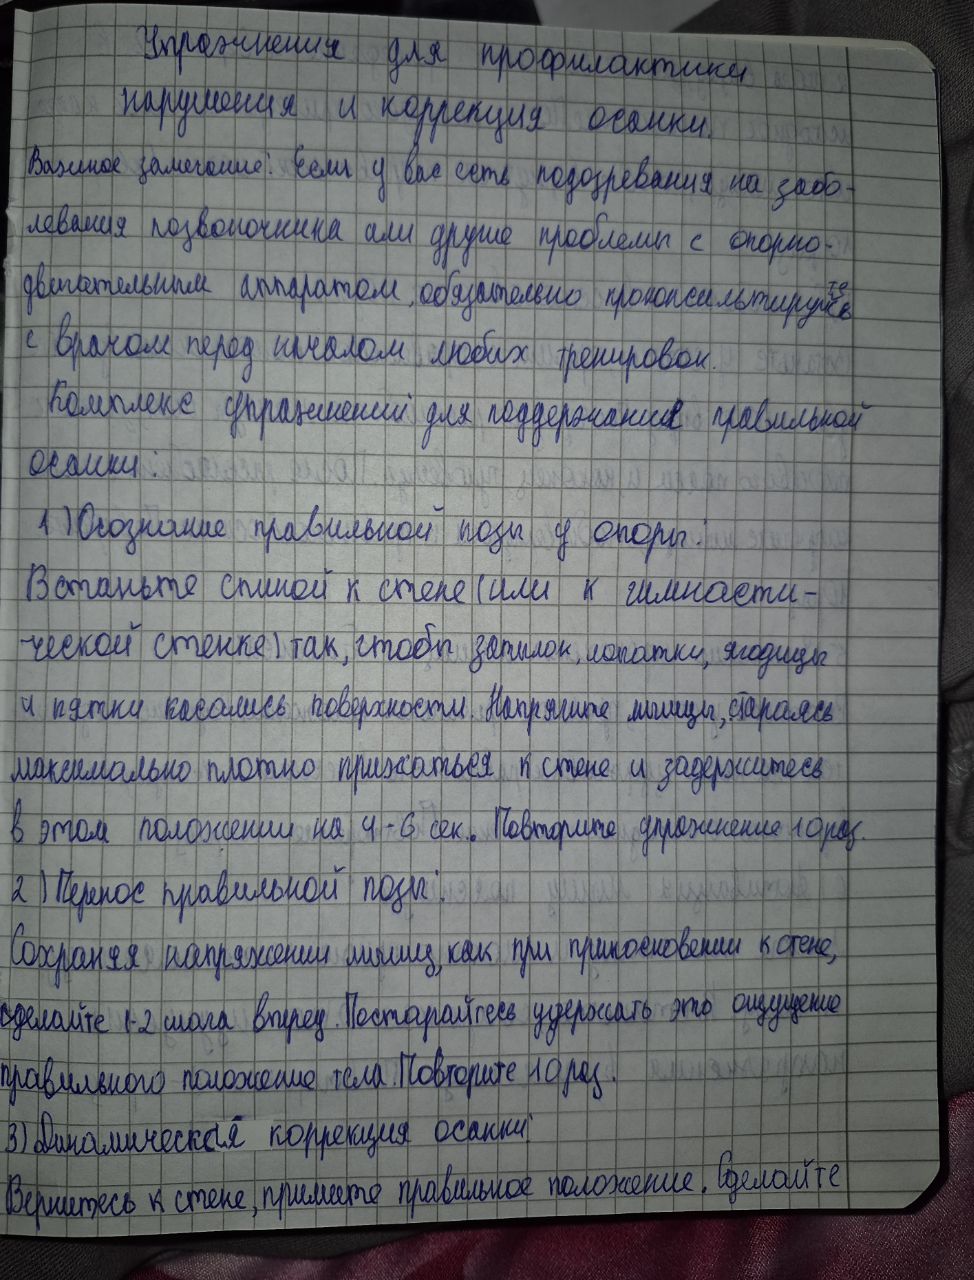 Упражнения для профилактики
нарушения и коррекция осанки.
Важное замечание: Если у вас есть подозревания на забо-
левания позвоночника или другие проблемы с опорно-
двигательным аппаратом, обязательно проконсультируйтесь
с врачом перед началом любых тренировок.
Комплекс упражнений для поддержания правильной
осанки:
1) Осознание правильной позы у опоры:
Встаньте спиной к стене (или к гимнасти-
-ческой стенке) так, чтобы затылок, лопатки, ягодицы
и пятки касались поверхности. Напрягите мышцы, стараясь
максимально плотно прижаться к стене и задержитесь
в этом положении на 4-6 сек. Повторите упражнение 10 раз.
2) Перенос правильной позы:
Сохраняя напряжении мышц, как при прикосновении к стене,
сделайте 1-2 шага вперед. Постарайтесь удержать это ощущение
правильного положение тела. Повторите 10 раз.
3) Динамическая коррекция осанки:
Вернитесь к стене, примите правильное положение. Сделайте